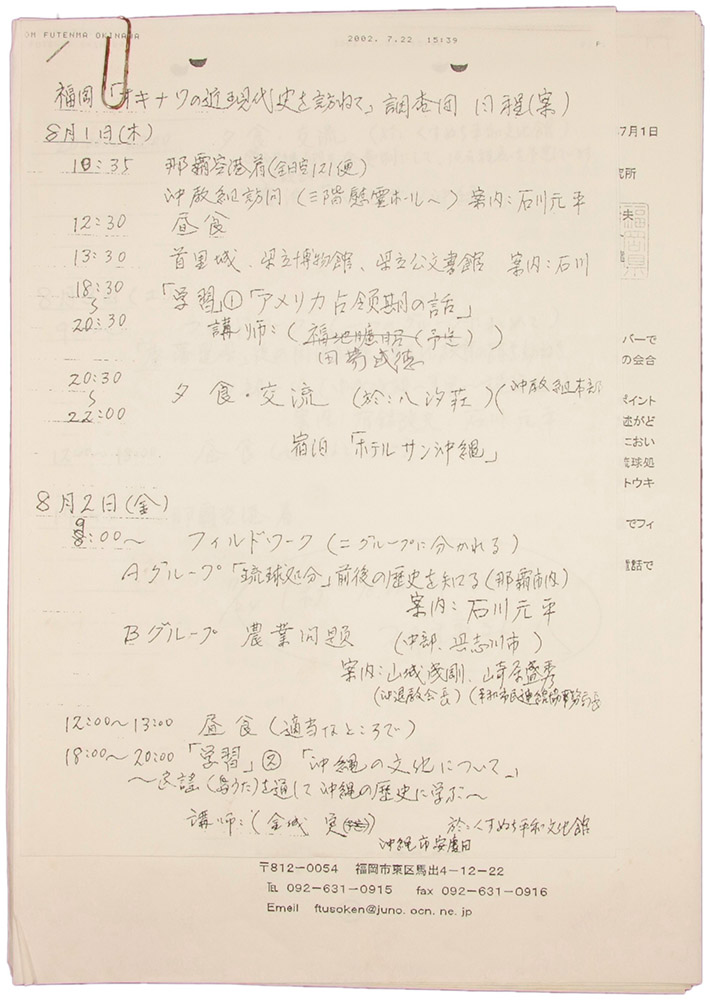 OM FUTENMA OKINAWA 2002. 7.22 15:39 P
福岡「オキナワの近現代史を訪ねて」調査団 日程(案)
8月1日(木)
10:35 那覇空港着(全日空121便)
沖教組訪問 (三階慰霊ホールへ) 案内:石川元平
12:30 昼食
13:30 首里城、県立博物館、県立公文書館 案内:石川
18:30
〜「学習」① 「アメリカ占領期の話」
20:30 講師:(福地曠昭(予定))
田場盛徳
20:30
〜 夕食・交流 (於:八汐荘)(沖教組本部
22:00
宿泊「ホテルサン沖縄」
8月2日(金)
9
8:00〜 フィルドワーク (二グループに分かれる)
Aグループ「琉球処分」前後の歴史を知る(那覇市内)
案内:石川元平
Bグループ 農業問題 (中部、具志川市)
案内:山城 剛、崎原盛秀
(沖退教会長) (平和市民連絡協事務局長
12:00〜13:00 昼食(適当なところで)
18:00〜20:00「学習」② 「沖縄の文化について」
〜民謡(島うた)を通して沖縄の歴史に学ぶ〜
講師:(金城 実 ) 於:くすぬち平和文化館
沖縄市安慶田
〒812-0054 福岡市東区馬出4-12-22
℡ 092-631-0915 fax 092-631-0916
Emeil ftusoken@juno.ocn.ne.jp
年7月1日
究所
央
福岡県
バーで
の会合
ポイント
迹がど
におい
琉球処
トウキ
でフィ
電話で